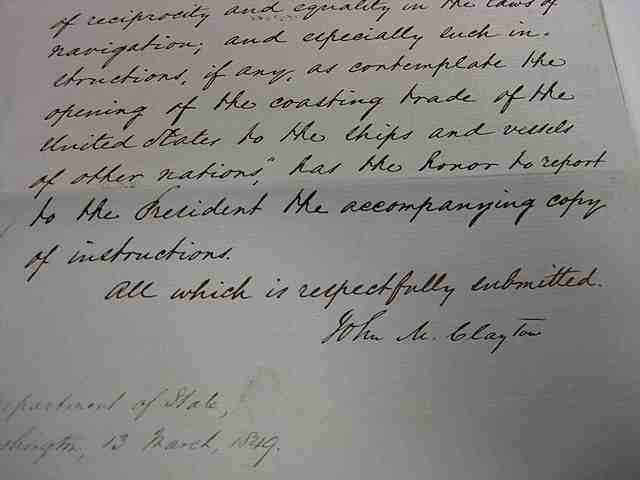 of reciprocity and equality in the laws of
navigation; and especially such in-
structions, if any, as contemplate the
opening of the coasting trade of the
United States to the ships and vessels
of other nations," has the honor to report
to the President the accompanying copy
of instructions.
All which is respectfully submitted.
John M. Clayton
epartment of State,
shington, 13 March, 1849.